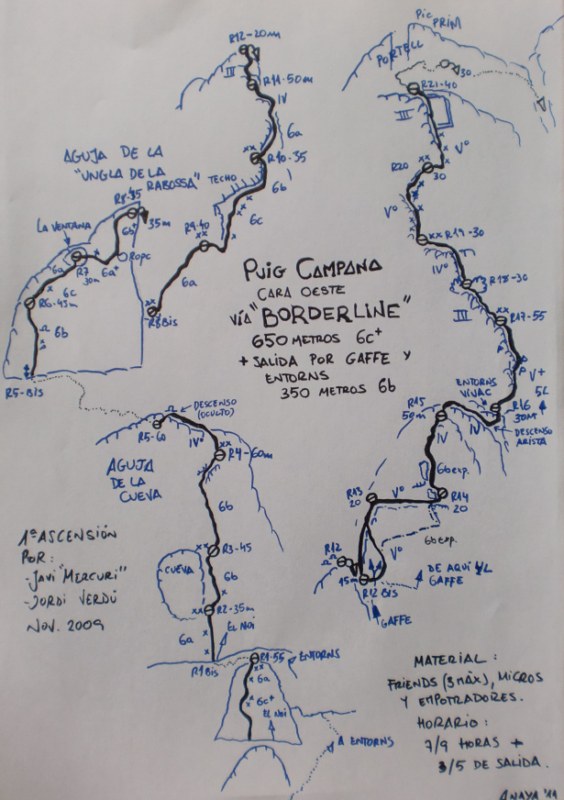 R12-20m
III
R11-50m
IV
6a
R10-35
6b
TECHO
6c
R9-40
6a
R8Bis
AGUJA DE LA
"UNGLA DE LA
RABOSSA"
R8-35
35m
6b+
LA VENTANA
Rapc
6a
R7
30m
6a+
6c
R6-45m
6b
R5-Bis
PIC
PRIM
PORTELL
30
R21-40
III
V°
R20
30
V°
R19-30
IV°
R18-30
III
R17-55
V+
5L
ENTORNS
VIVAC
R16
30M
DESCENSO
ARISTA
R15
50m
IV
IV
6b exp.
R13
20
V°
R14
20
6b exp.
R12
V°
15m
R12 BIS
DE AQUÍ
GAFFE
GAFFE
PUIG CAMPANA
CARA OESTE
VÍA "BORDERLINE"
650 METROS 6c+
+ SALIDA POR GAFFE Y
ENTORNS
350 METROS 6b
DESCENSO
(OCULTO)
R5-60
IV°
R4-60m
AGUJA
DE LA
CUEVA
6b
R3-45
CUEVA
6b
R2-35m
EL NOI
6a
R1Bis
R1-55
ENTORNS
6a
6c+
EL NOI
A ENTORNS
1ª ASCENSIÓN
POR:
-JAVI "MERCURI"
-JORDI VERDÚ
NOV. 2009
MATERIAL:
FRIENDS (3 MÀX), MICROS
Y EMPOTRADORES.
HORARIO:
7/9 HORAS +
3/5 DE SALIDA.
ANAYA '11